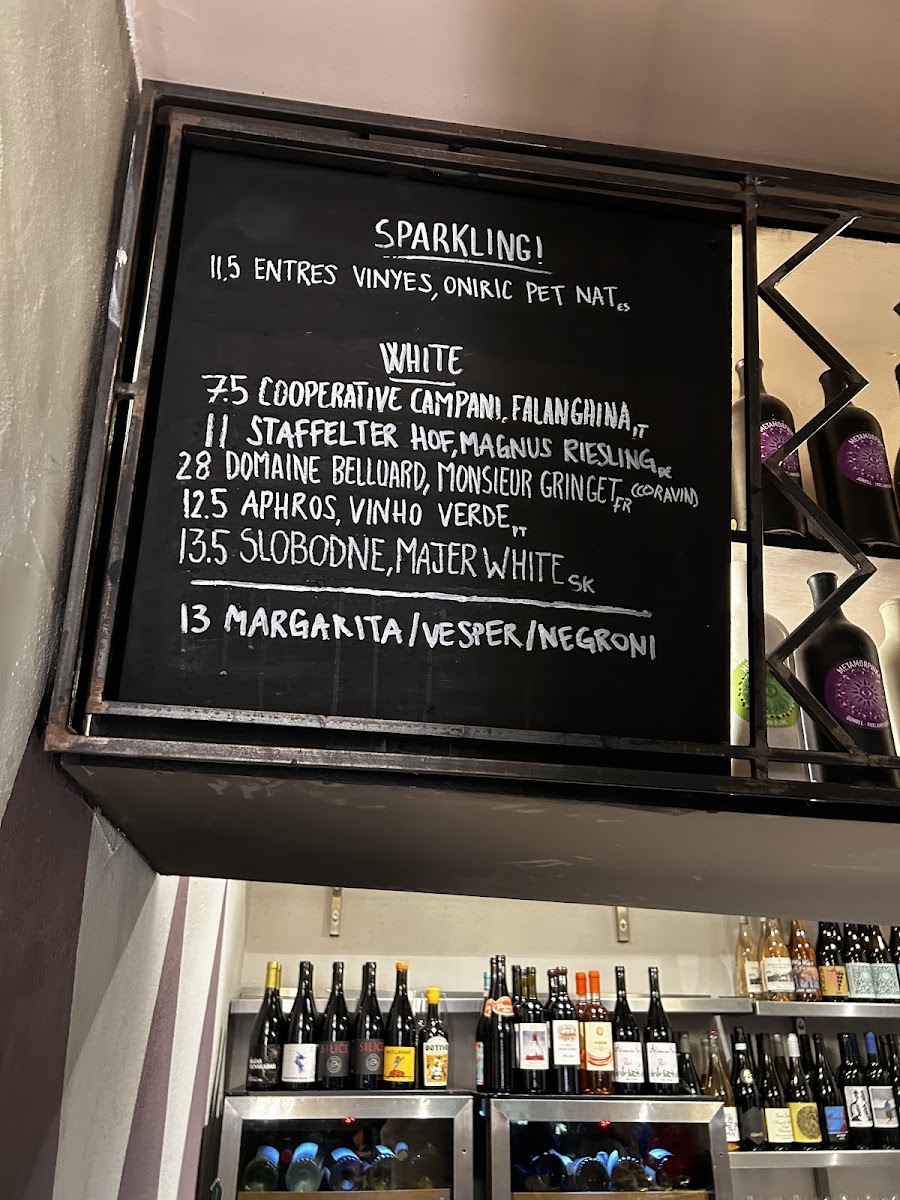 SPARKLING!
11,5 ENTRES VINYES, ONIRIC PET NAT ES
WHITE
7.5 COOPERATIVE CAMPANI, FALANGHINA, IT
11 STAFFELTER HOF, MAGNUS RIESLING DE
28 DOMAINE BELLUARD, MONSIEUR GRINGET FR (CORAVIN)
12.5 APHROS, VINHO VERDE, PT
13.5 SLOBODNE, MAJER WHITE SK
13 MARGARITA/VESPER/NEGRONI
METAMORPHIKA
METAMORPHIKA
METAMORPHIKA
SILICE
SILICE